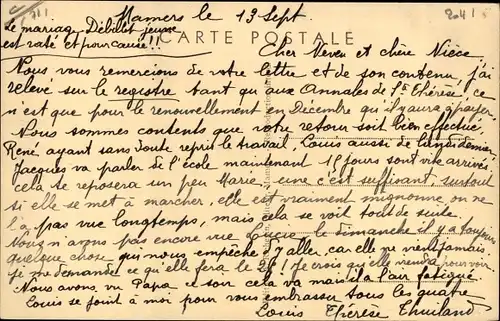 Mamers le 13 Sept.
Le mariage Débillet jeune
est raté et pour cause!!
CARTE POSTALE
Cher Neveu et chère Nièce
Nous vous remercions de votre lettre et de son contenu, j'ai
relevé sur le registre tant qu'aux Annales de Ste Thérèse, ce
n'est que pour le renouvellement en Décembre qu'il y aura à payer
Nous sommes contents que votre retour soit bien effectué
René ayant sans doute repris le travail, Louis aussi de lundi dernier
Jacques va parler de l'école maintenant 15 jours sont vite arrivés
cela te reposera un peu Marie, une c'est suffisant, surtout
si elle se met à marcher, elle est vraiment mignonne, on ne
l'a pas vue longtemps, mais cela se voit tout de suite.
Nous n'avons pas encore vue le dimanche il y a toujours
quelque chose qui nous empêche d'y aller, car elle ne vient jamais
je me demande ce qu'elle fera le 26! je crois qu'elle viendra pour voir
Nous avons vu Papa ce soir cela va mais il a l'air fatigué.
Louis se joint à moi pour vous embrasser tous les quatre
Louis Thérèse